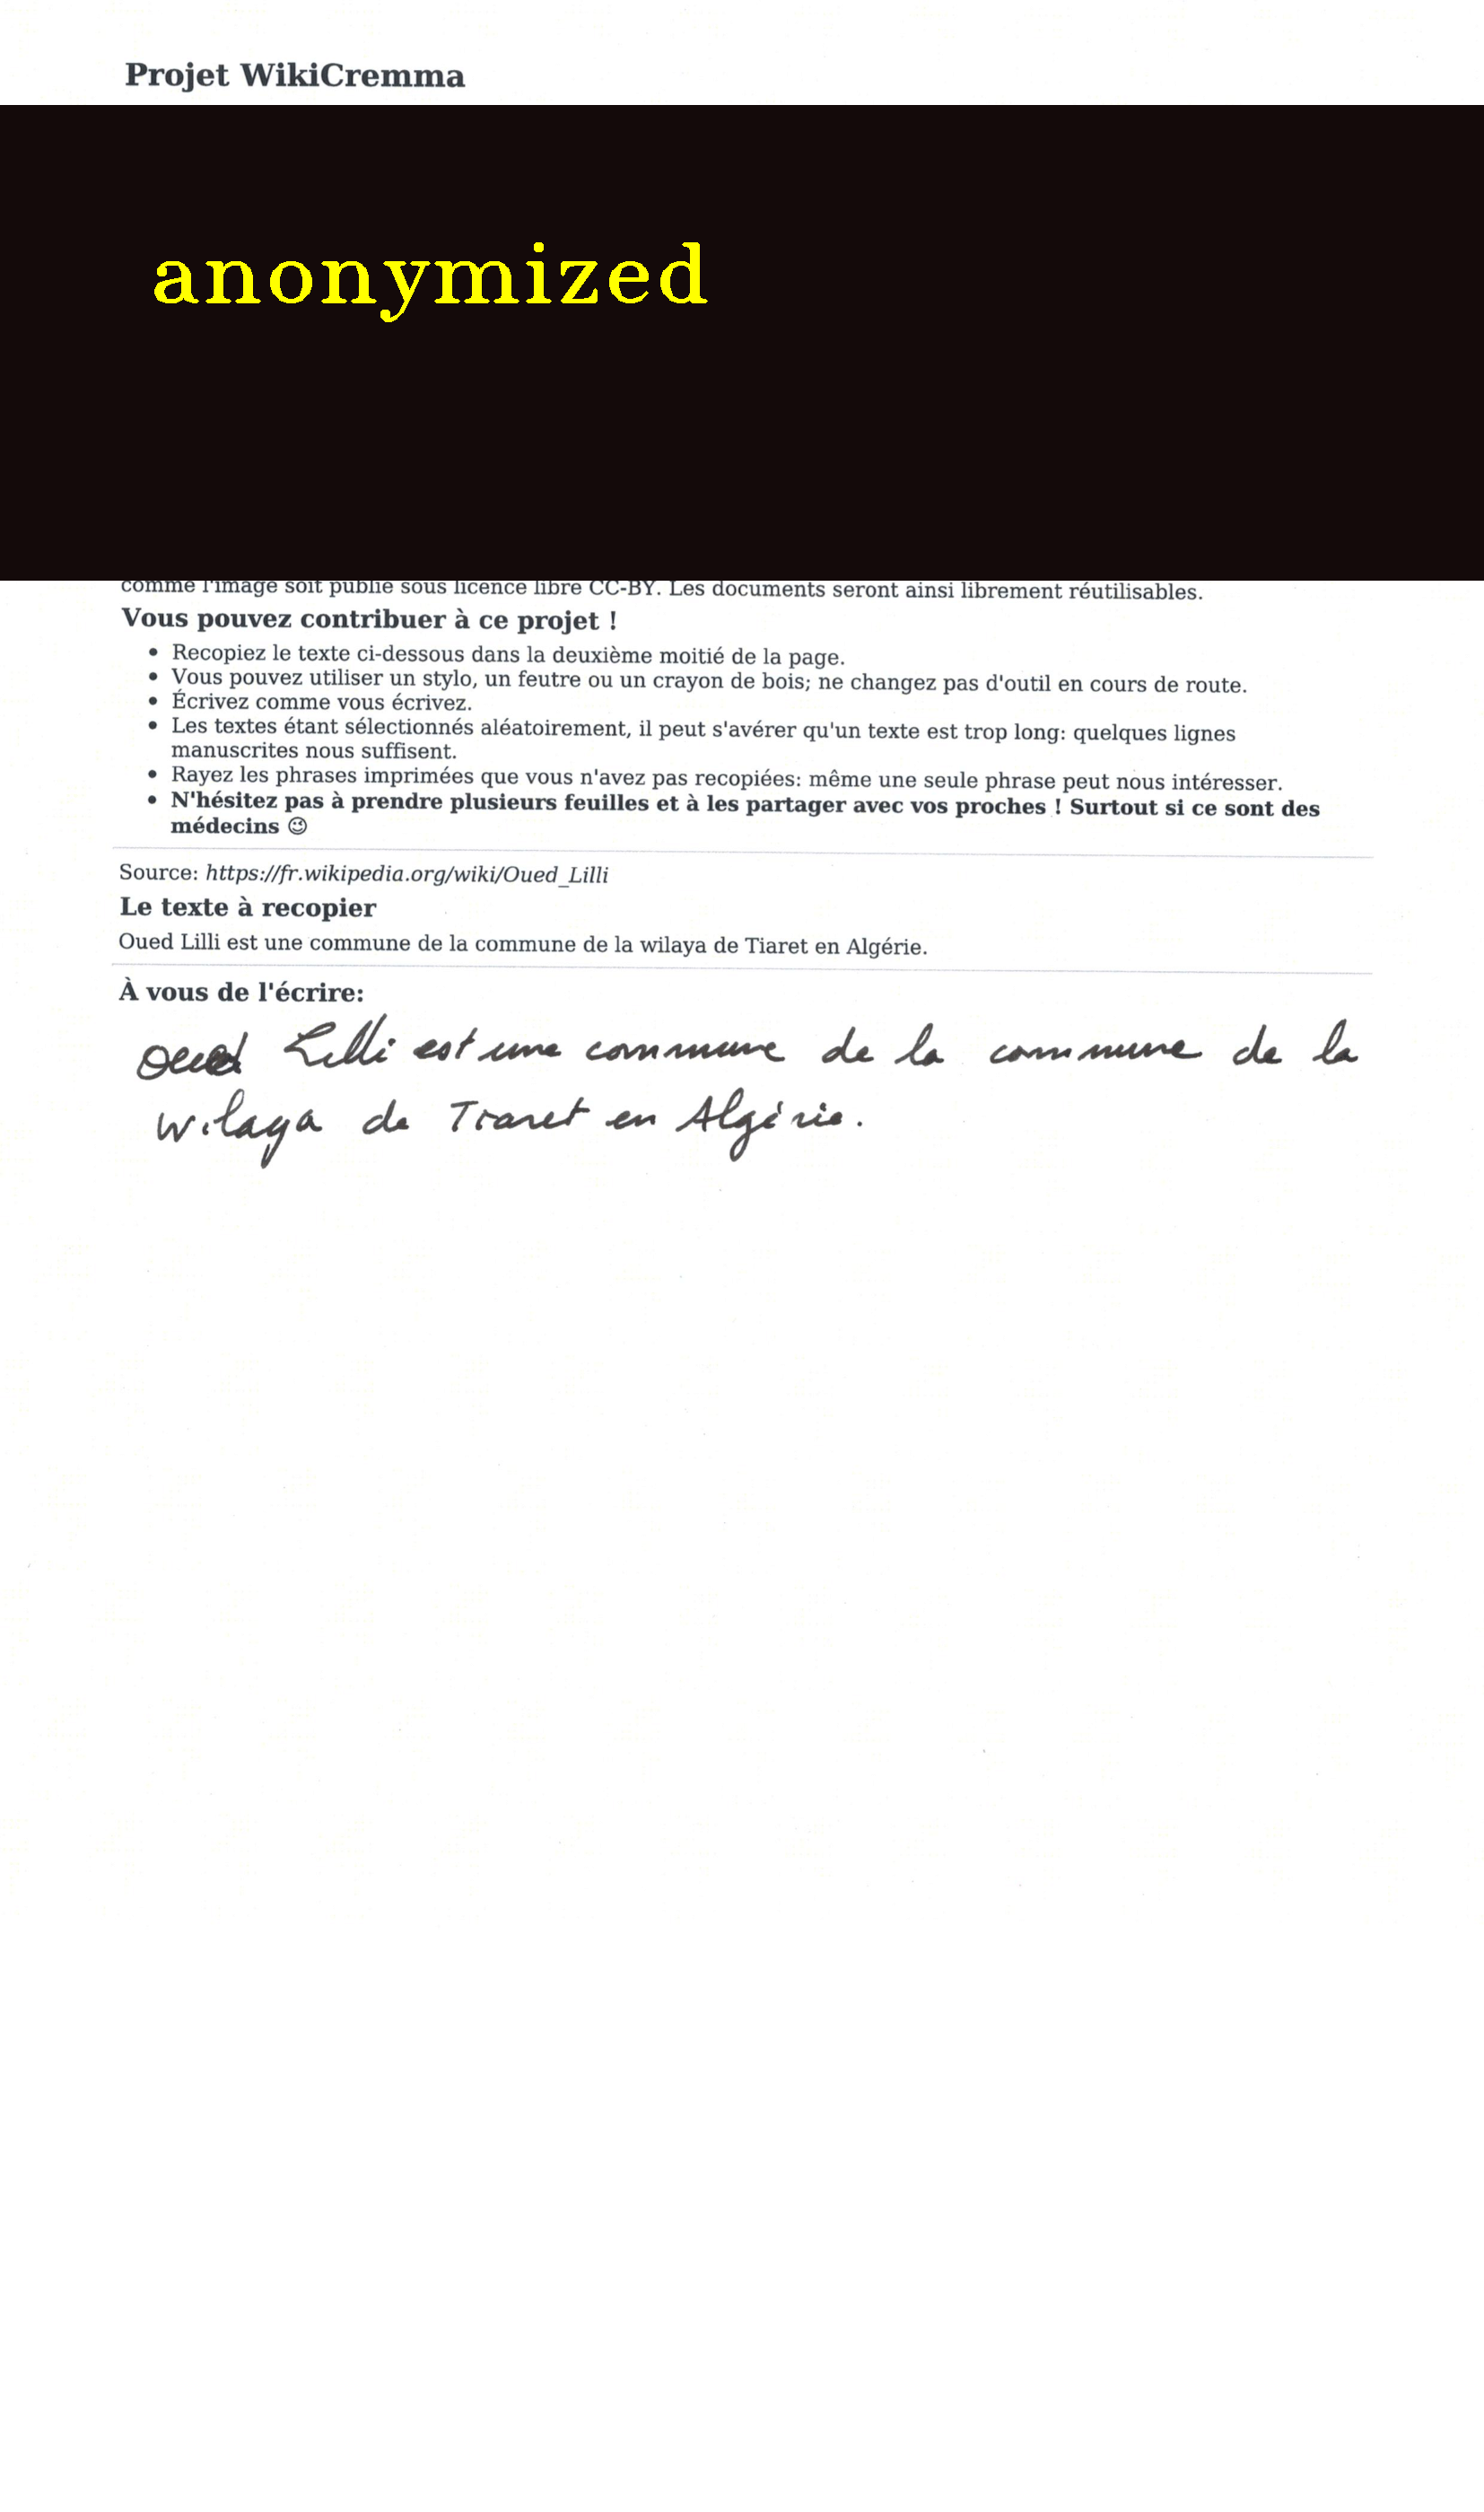 Projet WikiCremma
anonymized
comme l'image soit publié sous licence libre CC-BY. Les documents seront ainsi librement réutilisables.
Vous pouvez contribuer à ce projet !
• Recopiez le texte ci-dessous dans la deuxième moitié de la page.
• Vous pouvez utiliser un stylo, un feutre ou un crayon de bois; ne changez pas d'outil en cours de route.
• Écrivez comme vous écrivez.
• Les textes étant sélectionnés aléatoirement, il peut s'avérer qu'un texte est trop long: quelques lignes
manuscrites nous suffisent.
• Rayez les phrases imprimées que vous n'avez pas recopiées: même une seule phrase peut nous intéresser.
• N'hésitez pas à prendre plusieurs feuilles et à les partager avec vos proches ! Surtout si ce sont des
médecins 😉
Source: https://fr.wikipedia.org/wiki/Oued_Lilli
Le texte à recopier
Oued Lilli est une commune de la commune de la wilaya de Tiaret en Algérie.
À vous de l'écrire:
Oued Lilli est une commune de la commune de la
wilaya de Tiaret en Algérie.